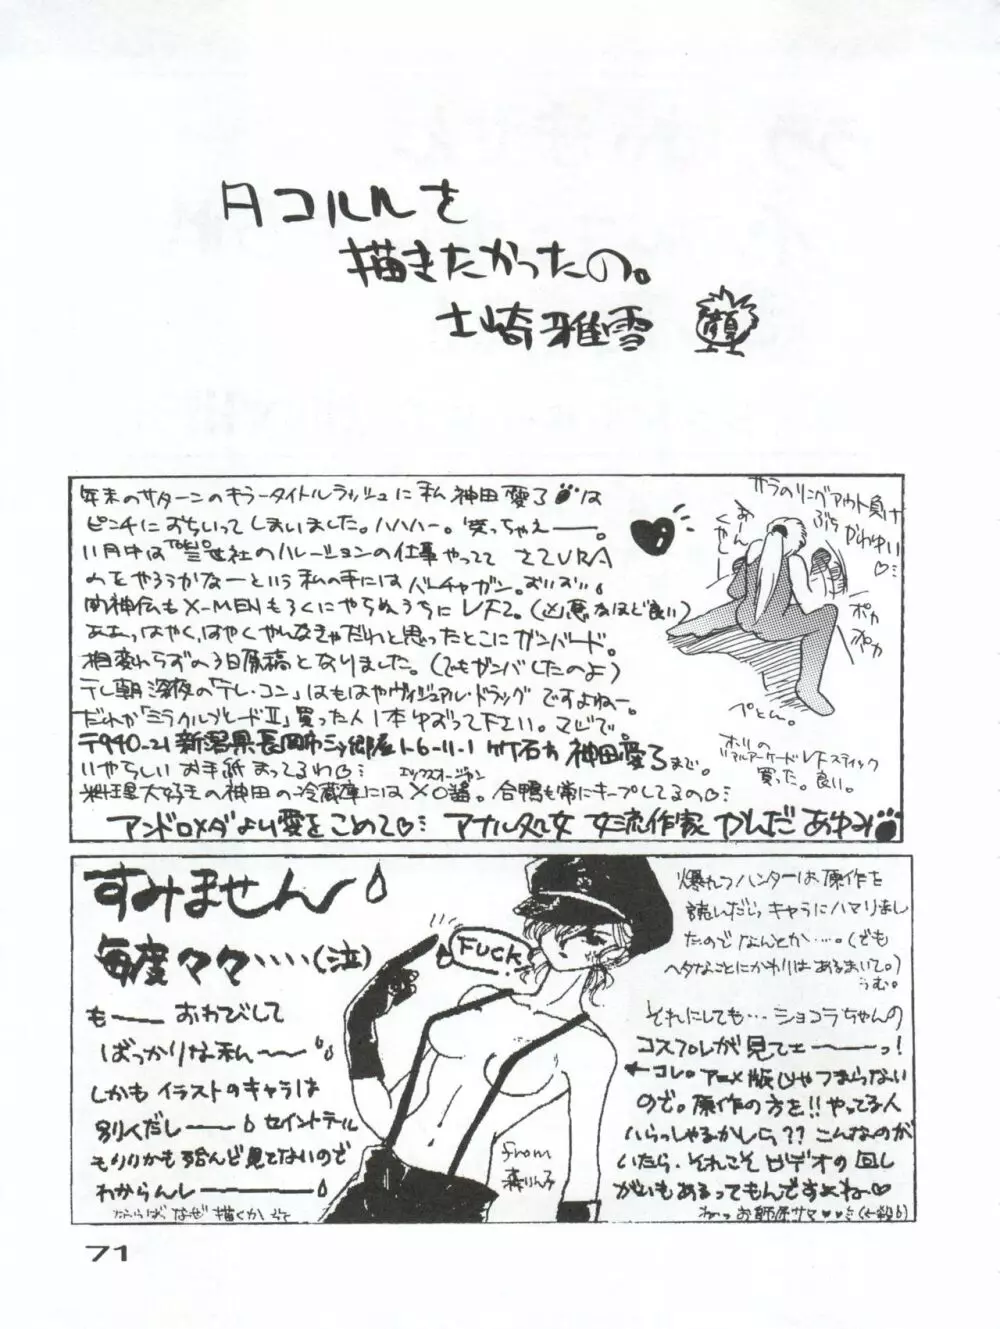 タコルルを
描きたかったの。
士崎雅雪 顔
年末のサターンのキラータイトルラッシュに私 神田愛了は
ピンチにおちいってしまいました。ハハハー。笑っちゃえー。
11月中は 社のハレーションの仕事やってて さてVRA
めをやろうかなーという私の手にはバーチャガン。
闘神伝もX-MENもろくにやらぬうちにVF2。(凶悪なほど良い)
ああっはやく、はやくやんなきゃだわと思ったとこにガンバード。
相変わらずの3日原稿となりました。(でもガンバしたのよ)
テレ朝深夜の「テレ・コン」はもはやヴィジュアル・ドラッグですよねー
だれか「ミラクルブレードⅡ」買った人1本ゆずって下さい。マジで。
いやらしいお手紙まってるわ♡
エックスオージャン
料理大好きの神田の冷蔵庫にはXO醤。合鴨も常にキープしてるの♡
アンドロメダより愛をこめて♡ アナル処女 女流作家 かんだあゆみ
サラのリングアウト負け
ぶち かわゆい
♡
あーん
くやしー
ポカ
ポカ
ぺとん。
ホリの
リアルアーケードVFスティック
買った。良い。
すみません
毎度々々‥‥(泣)
も―― おわびして
ばっかりな私〜〜
しかもイラストのキャラは
別人だし―― セイントテール
もりりかも殆んど見てないので
わからんし――
ならばなぜ描くか って
Fuck
from
森りん子
爆れつハンターは、原作を
読んだらキャラにハマりまし
たのでなんとか…。(でも
ヘタなことにかわりはあるまいて。)
うむ。
それにしても… ショコラちゃんの
コスプレが見てェ――っ!
←コレ。アニメ版じゃつまらない
ので。原作の方を!!やってる人
いらっしゃるかしら??こんなのが
いたら、それこそビデオの回し
がいもあるってもんですよね〜♡
71